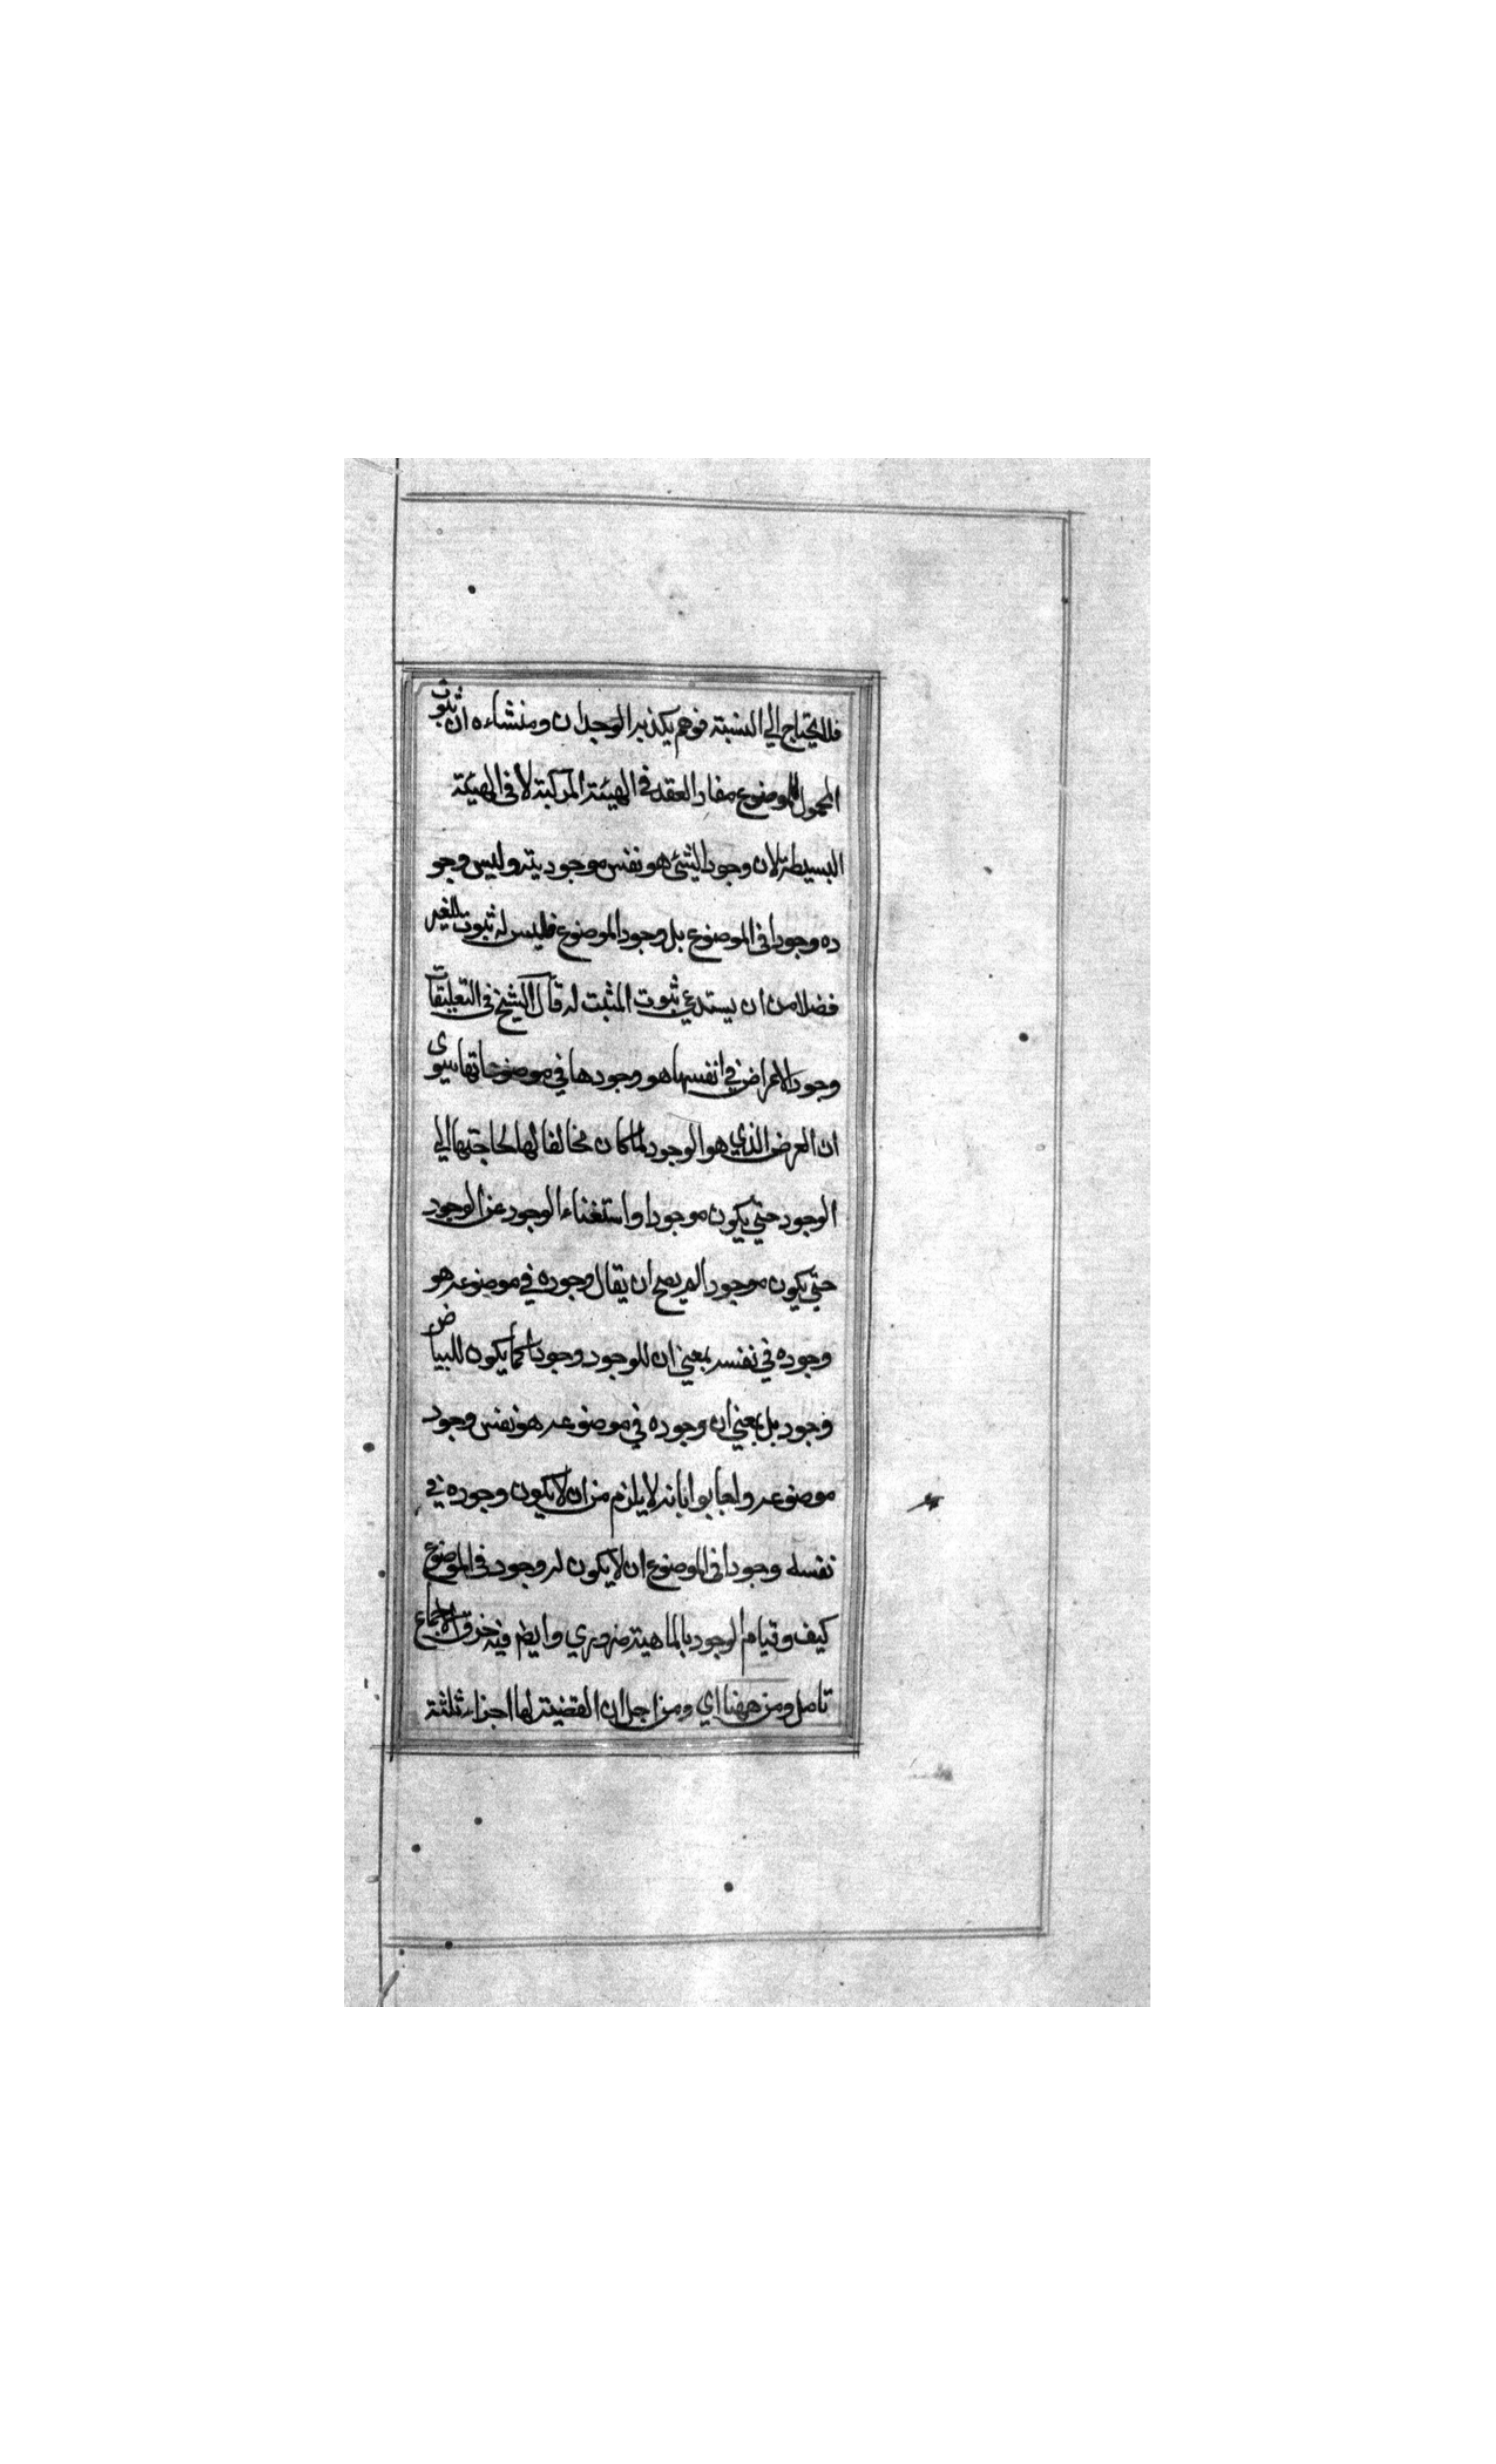 فلا يحتاج الي النسبة فوهم يكذبه الوجدان ومنشاءه ان ثبوت
المحمول للموضوع مفاد العقد في الهيئة المركبة لا في الهيئة
البسيطة لان وجود الشئ هو نفس موجوديته وليس وجو
ده وجودا في الموضوع بل وجود الموضوع فليس له ثبوت للغير
فضلا من ان يستدعي ثبوت المثبت له قال الشيخ في التعليقات
وجود الاعراض في انفسها هو وجودها في موضوعاتها سوى
ان العرض الذي هو الوجود لما كان مخالفا لها لحاجتها الي
الوجود حتي يكون موجودا واستغناء الوجود عن الوجود
حتي يكون موجودا لم يصح ان يقال وجوده في موضوعه هو
وجوده في نفسه بمعني ان للوجود وجودا كما يكون للبياض
وجود بل بمعني ان وجوده في موضوعه هو نفس وجود
موضوعه بانه لا يلزم من ان لا يكون وجوده في
نفسه وجودا في الموضوع ان لا يكون له وجود في الموضوع
كيف وقيام الوجود بالماهية ضروري وايضم فيه خرق الاجماع
تامل ومن ههنا اي ومن اجل ان القضية لها اجزاء ثلثة